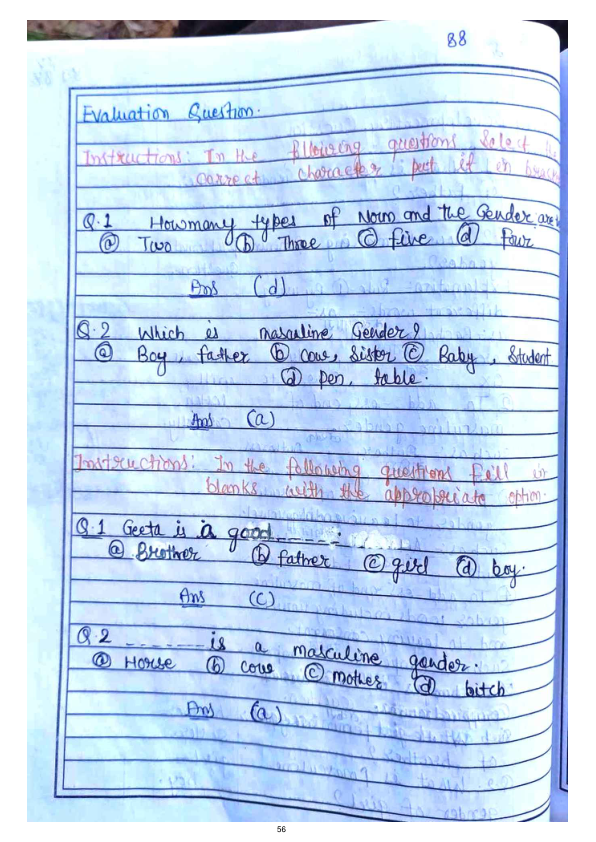 88
Evaluation Question.
Instructions: In the following questions Select the
correct character put it in
Q.1 Howmany types of Noun and the Gender are
ⓐ Two ⓑ Three ⓒ five ⓓ four
Ans (d)
Q.2 Which is masculine Gender?
ⓐ Boy, father ⓑ cow, Sister ⓒ Baby, Student
ⓓ pen, table.
Ans (a)
Instructions: In the following questions fill in
blanks with the appropriate option.
Q.1 Geeta is a good_____.
ⓐ Brother ⓑ father ⓒ girl ⓓ boy.
Ans (C)
Q.2 ______ is a masculine gender.
ⓐ Horse ⓑ cow ⓒ mother ⓓ bitch
Ans (a)
56